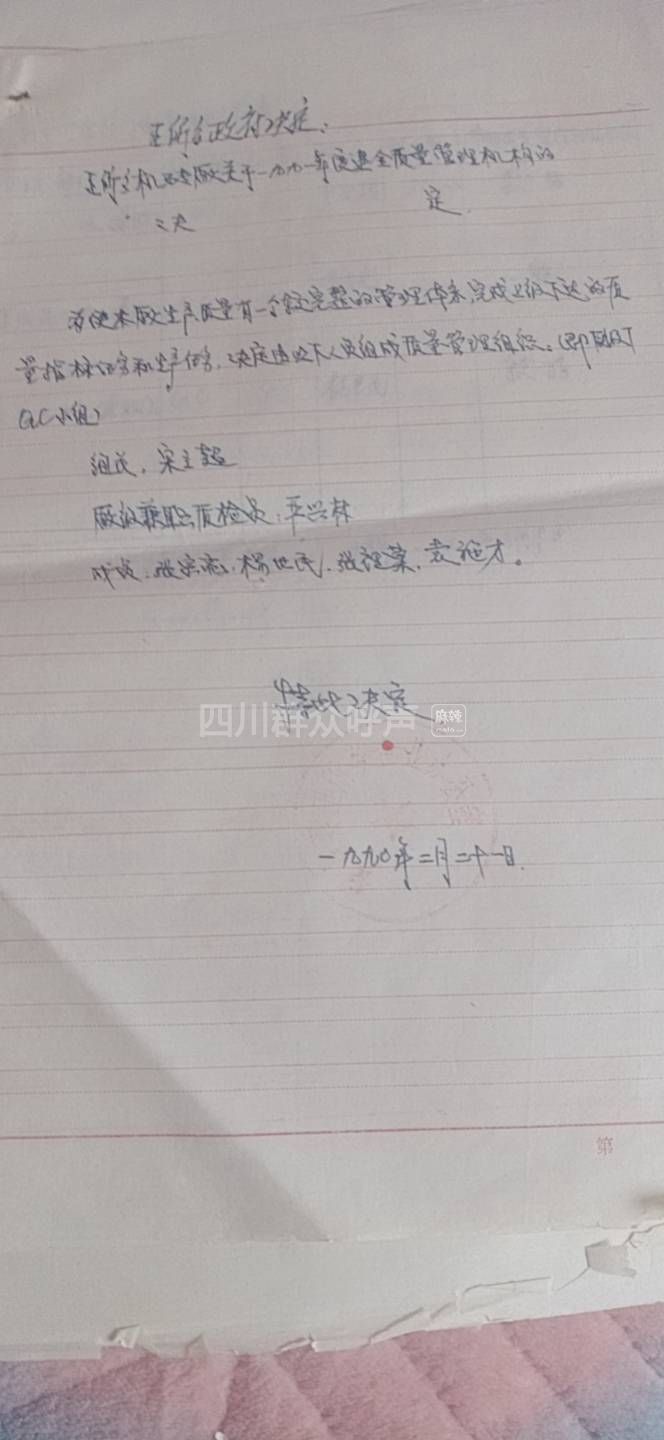 政府决定:
机砖厂关于一九九一年度建全质量管理机构的
决 定
为使本厂生产质量有一个较完整的管理体系,完成上级下达的质
量指标任务和生产任务,决定由以下人员组成质量管理组织。(即
QC小组)
组长,宋
厂级兼职质检员:兴林
成员:张 杨世民,张 才。
特此决定
四川群众呼声 麻辣
一九九〇年二月二十一日
第